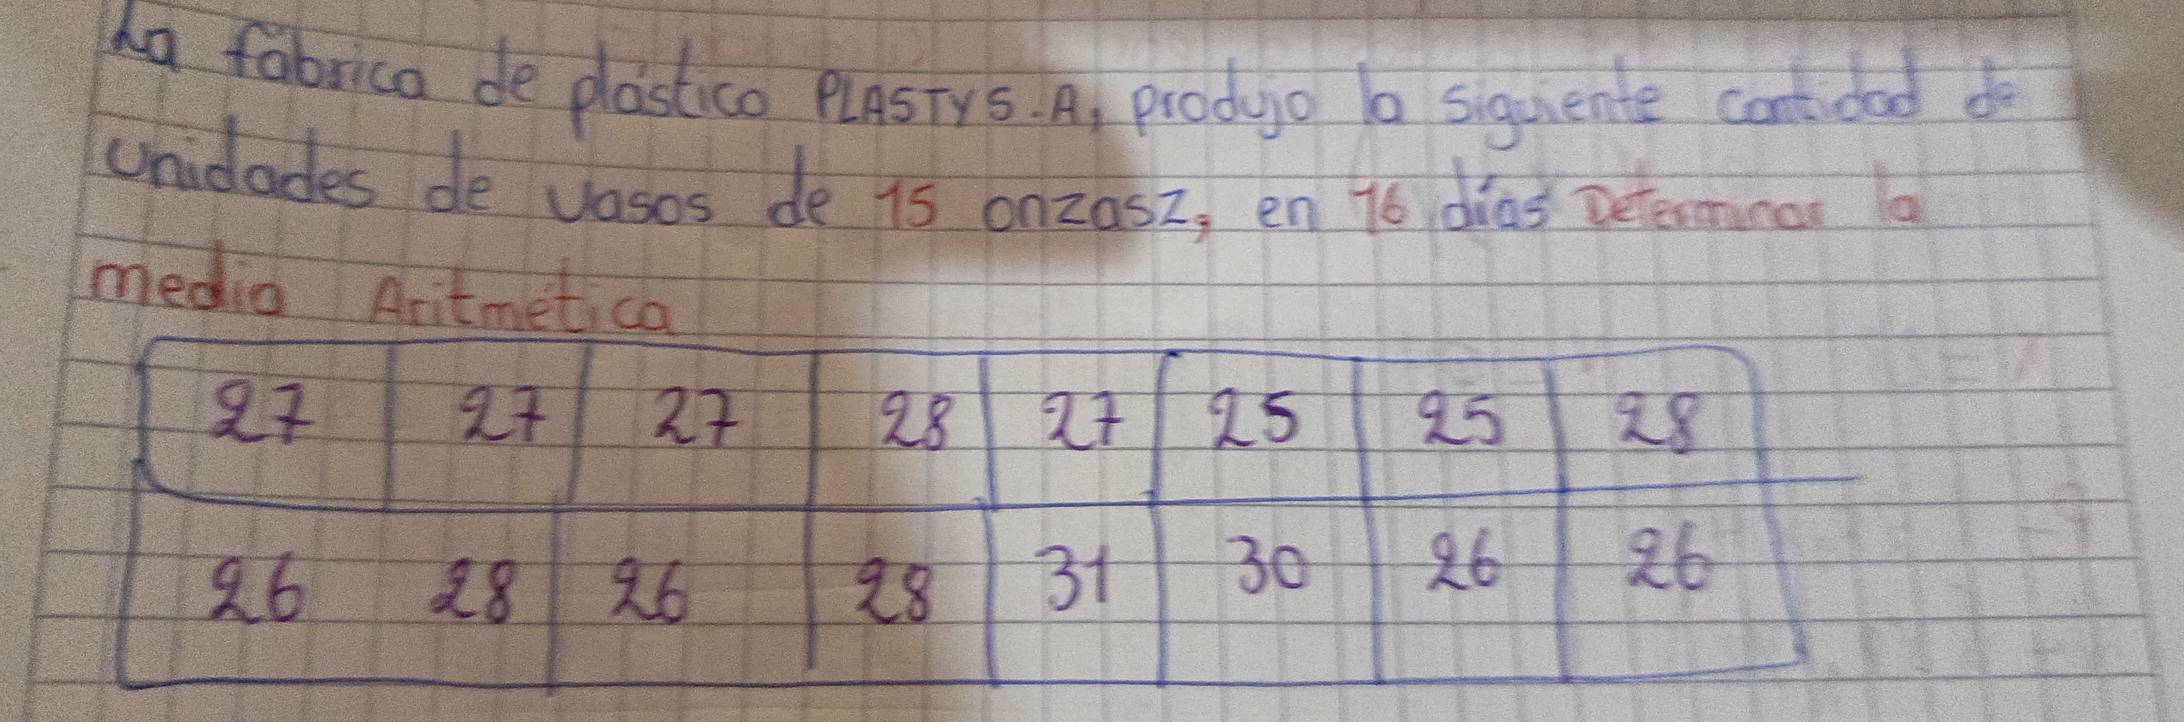 La fábrica de plástico PLASTY S.A, produjo la siguiente cantidad de
unidades de vasos de 15 onzasz, en 16 días Determinar la
media Aritmética
27 27 27 28 27 25 25 28
26 28 26 28 31 30 26 26